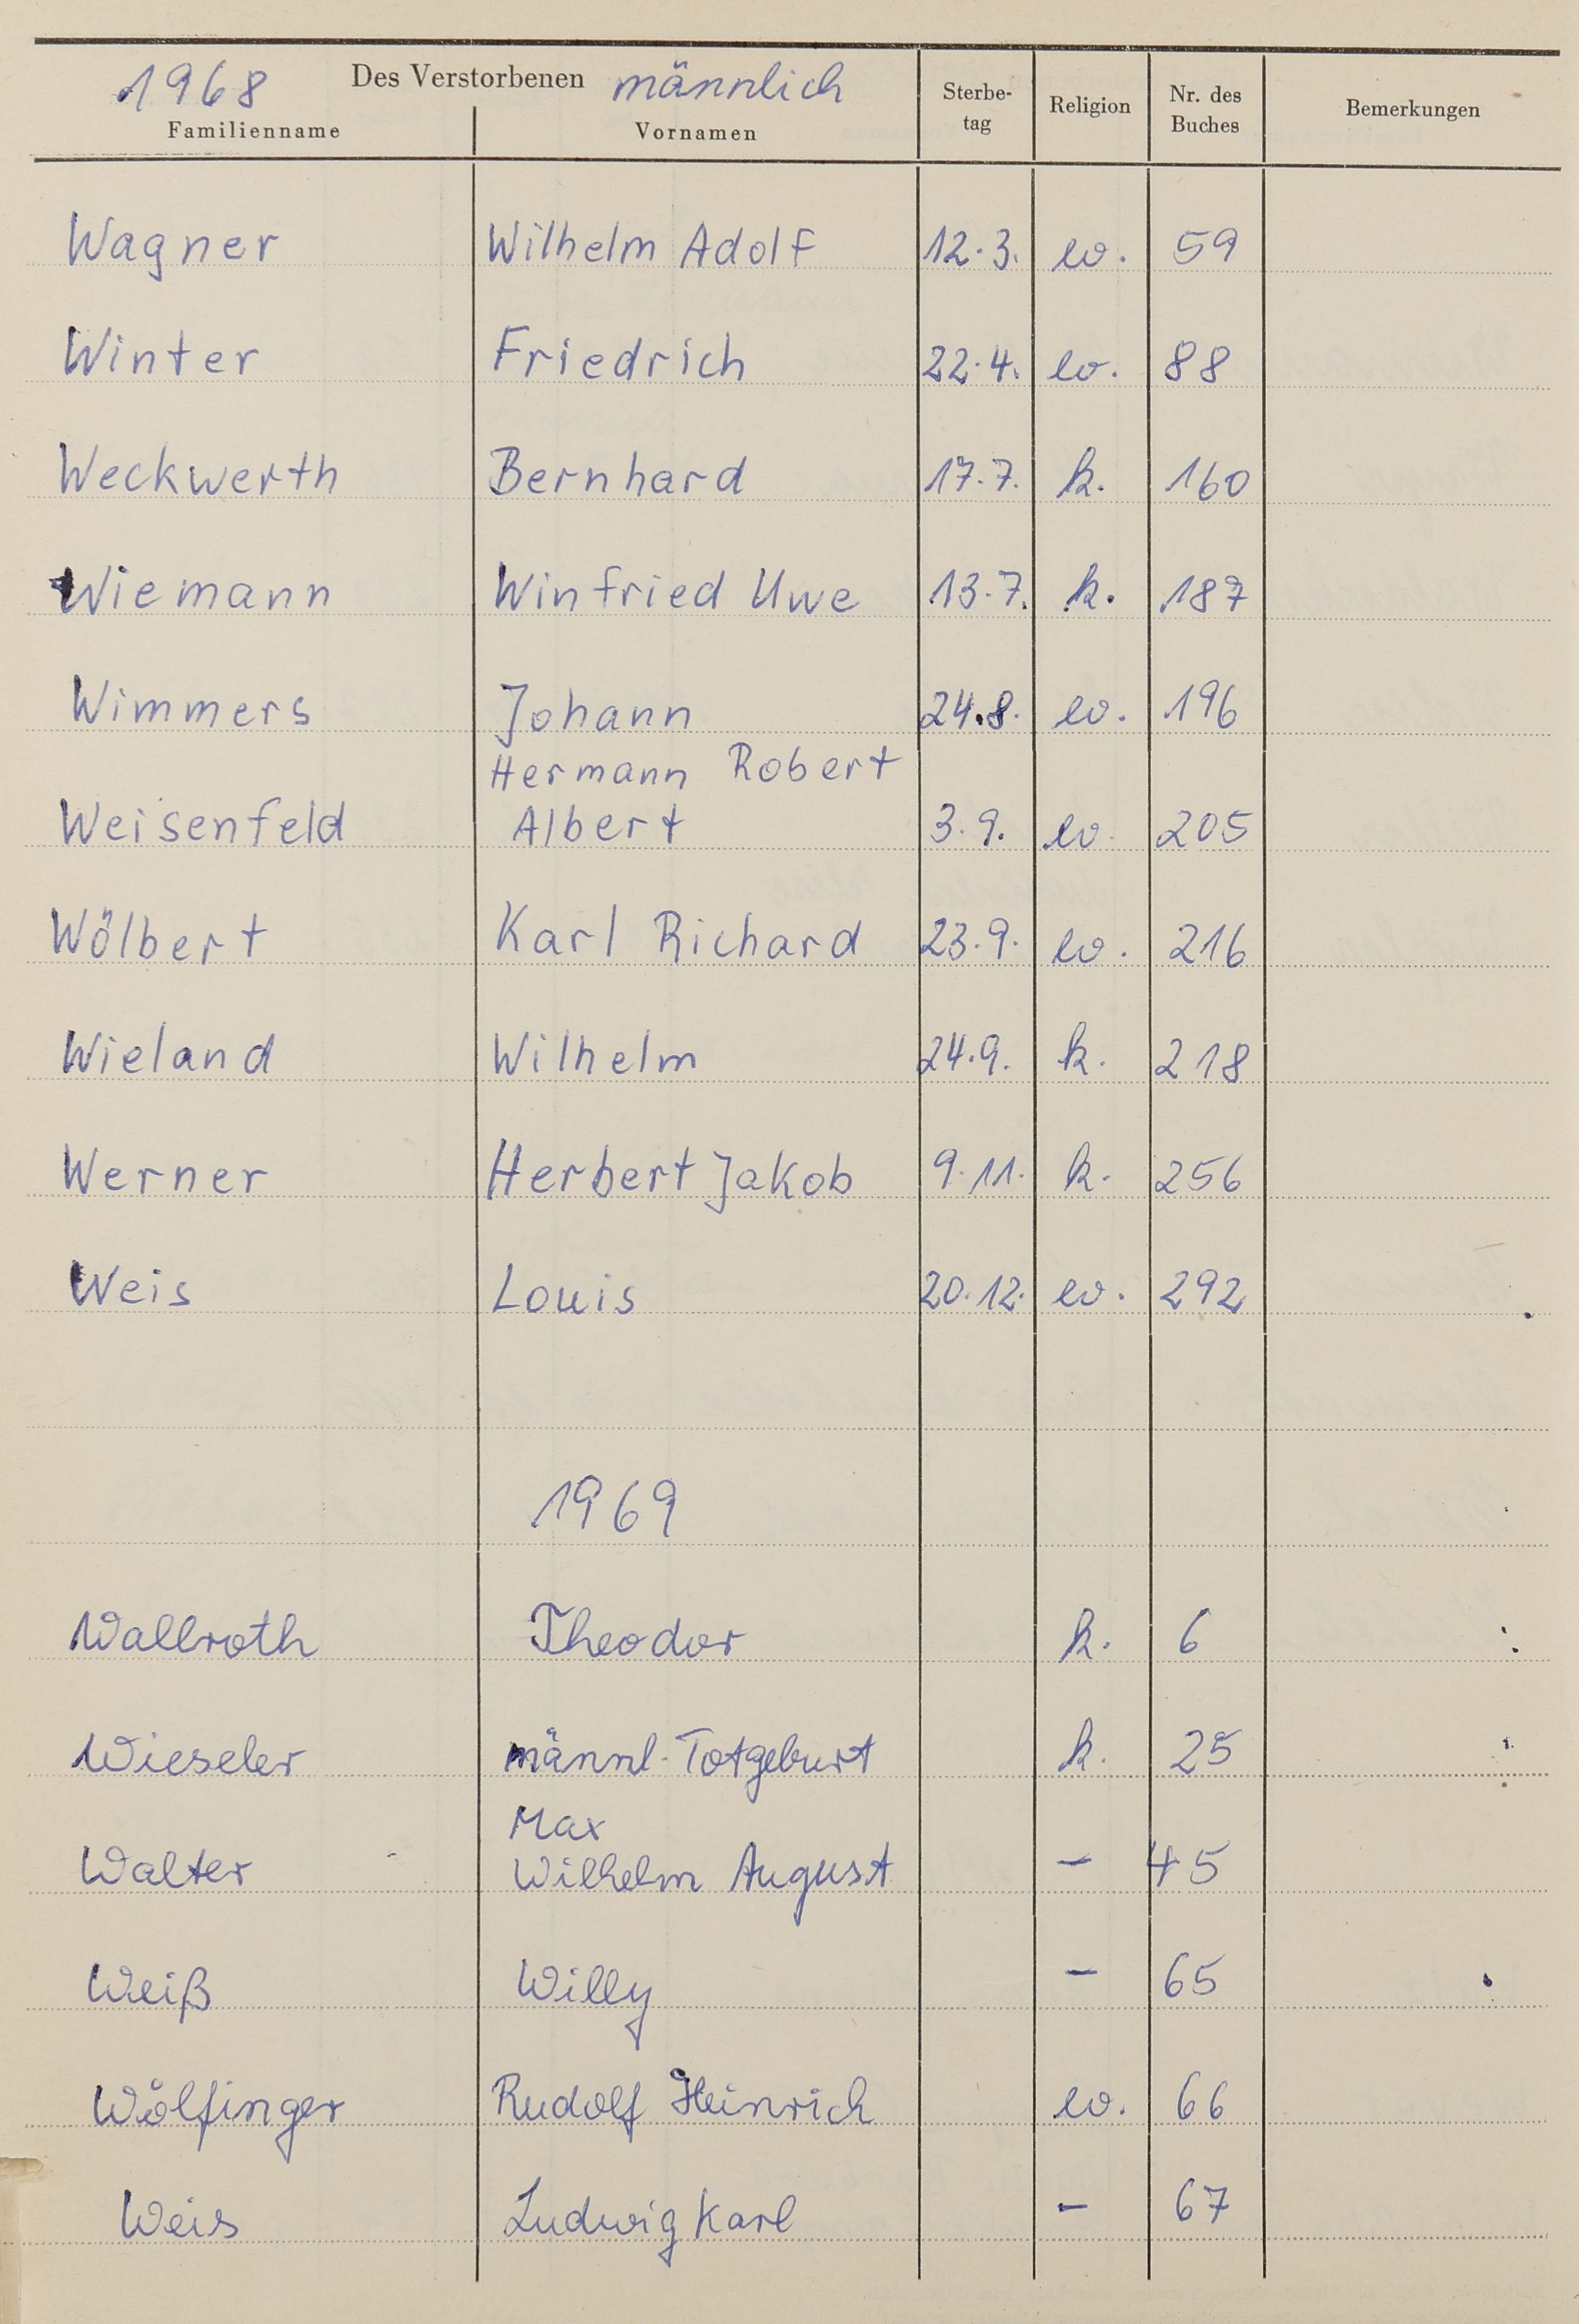 1968 Des Verstorbenen männlich
Familienname Vornamen Sterbe- tag Religion Nr. des Buches Bemerkungen
Wagner Wilhelm Adolf 12.3. ev. 59
Winter Friedrich 22.4. ev. 88
Weckwerth Bernhard 17.7. k. 160
Wiemann Winfried Uwe 13.7. k. 187
Wimmers Johann 24.8. ev. 196
Hermann Robert
Weisenfeld Albert 3.9. ev. 205
Wölbert Karl Richard 23.9. ev. 216
Wieland Wilhelm 24.9. k. 218
Werner Herbert Jakob 9.11. k. 256
Weis Louis 20.12. ev. 292
1969
Wallroth Theodor k. 6
Wieseler männl. Totgeburt k. 25
Max
Walter Wilhelm August - 45
Weiß Willy - 65
Wölfinger Rudolf Heinrich ev. 66
Weis Ludwig Karl - 67